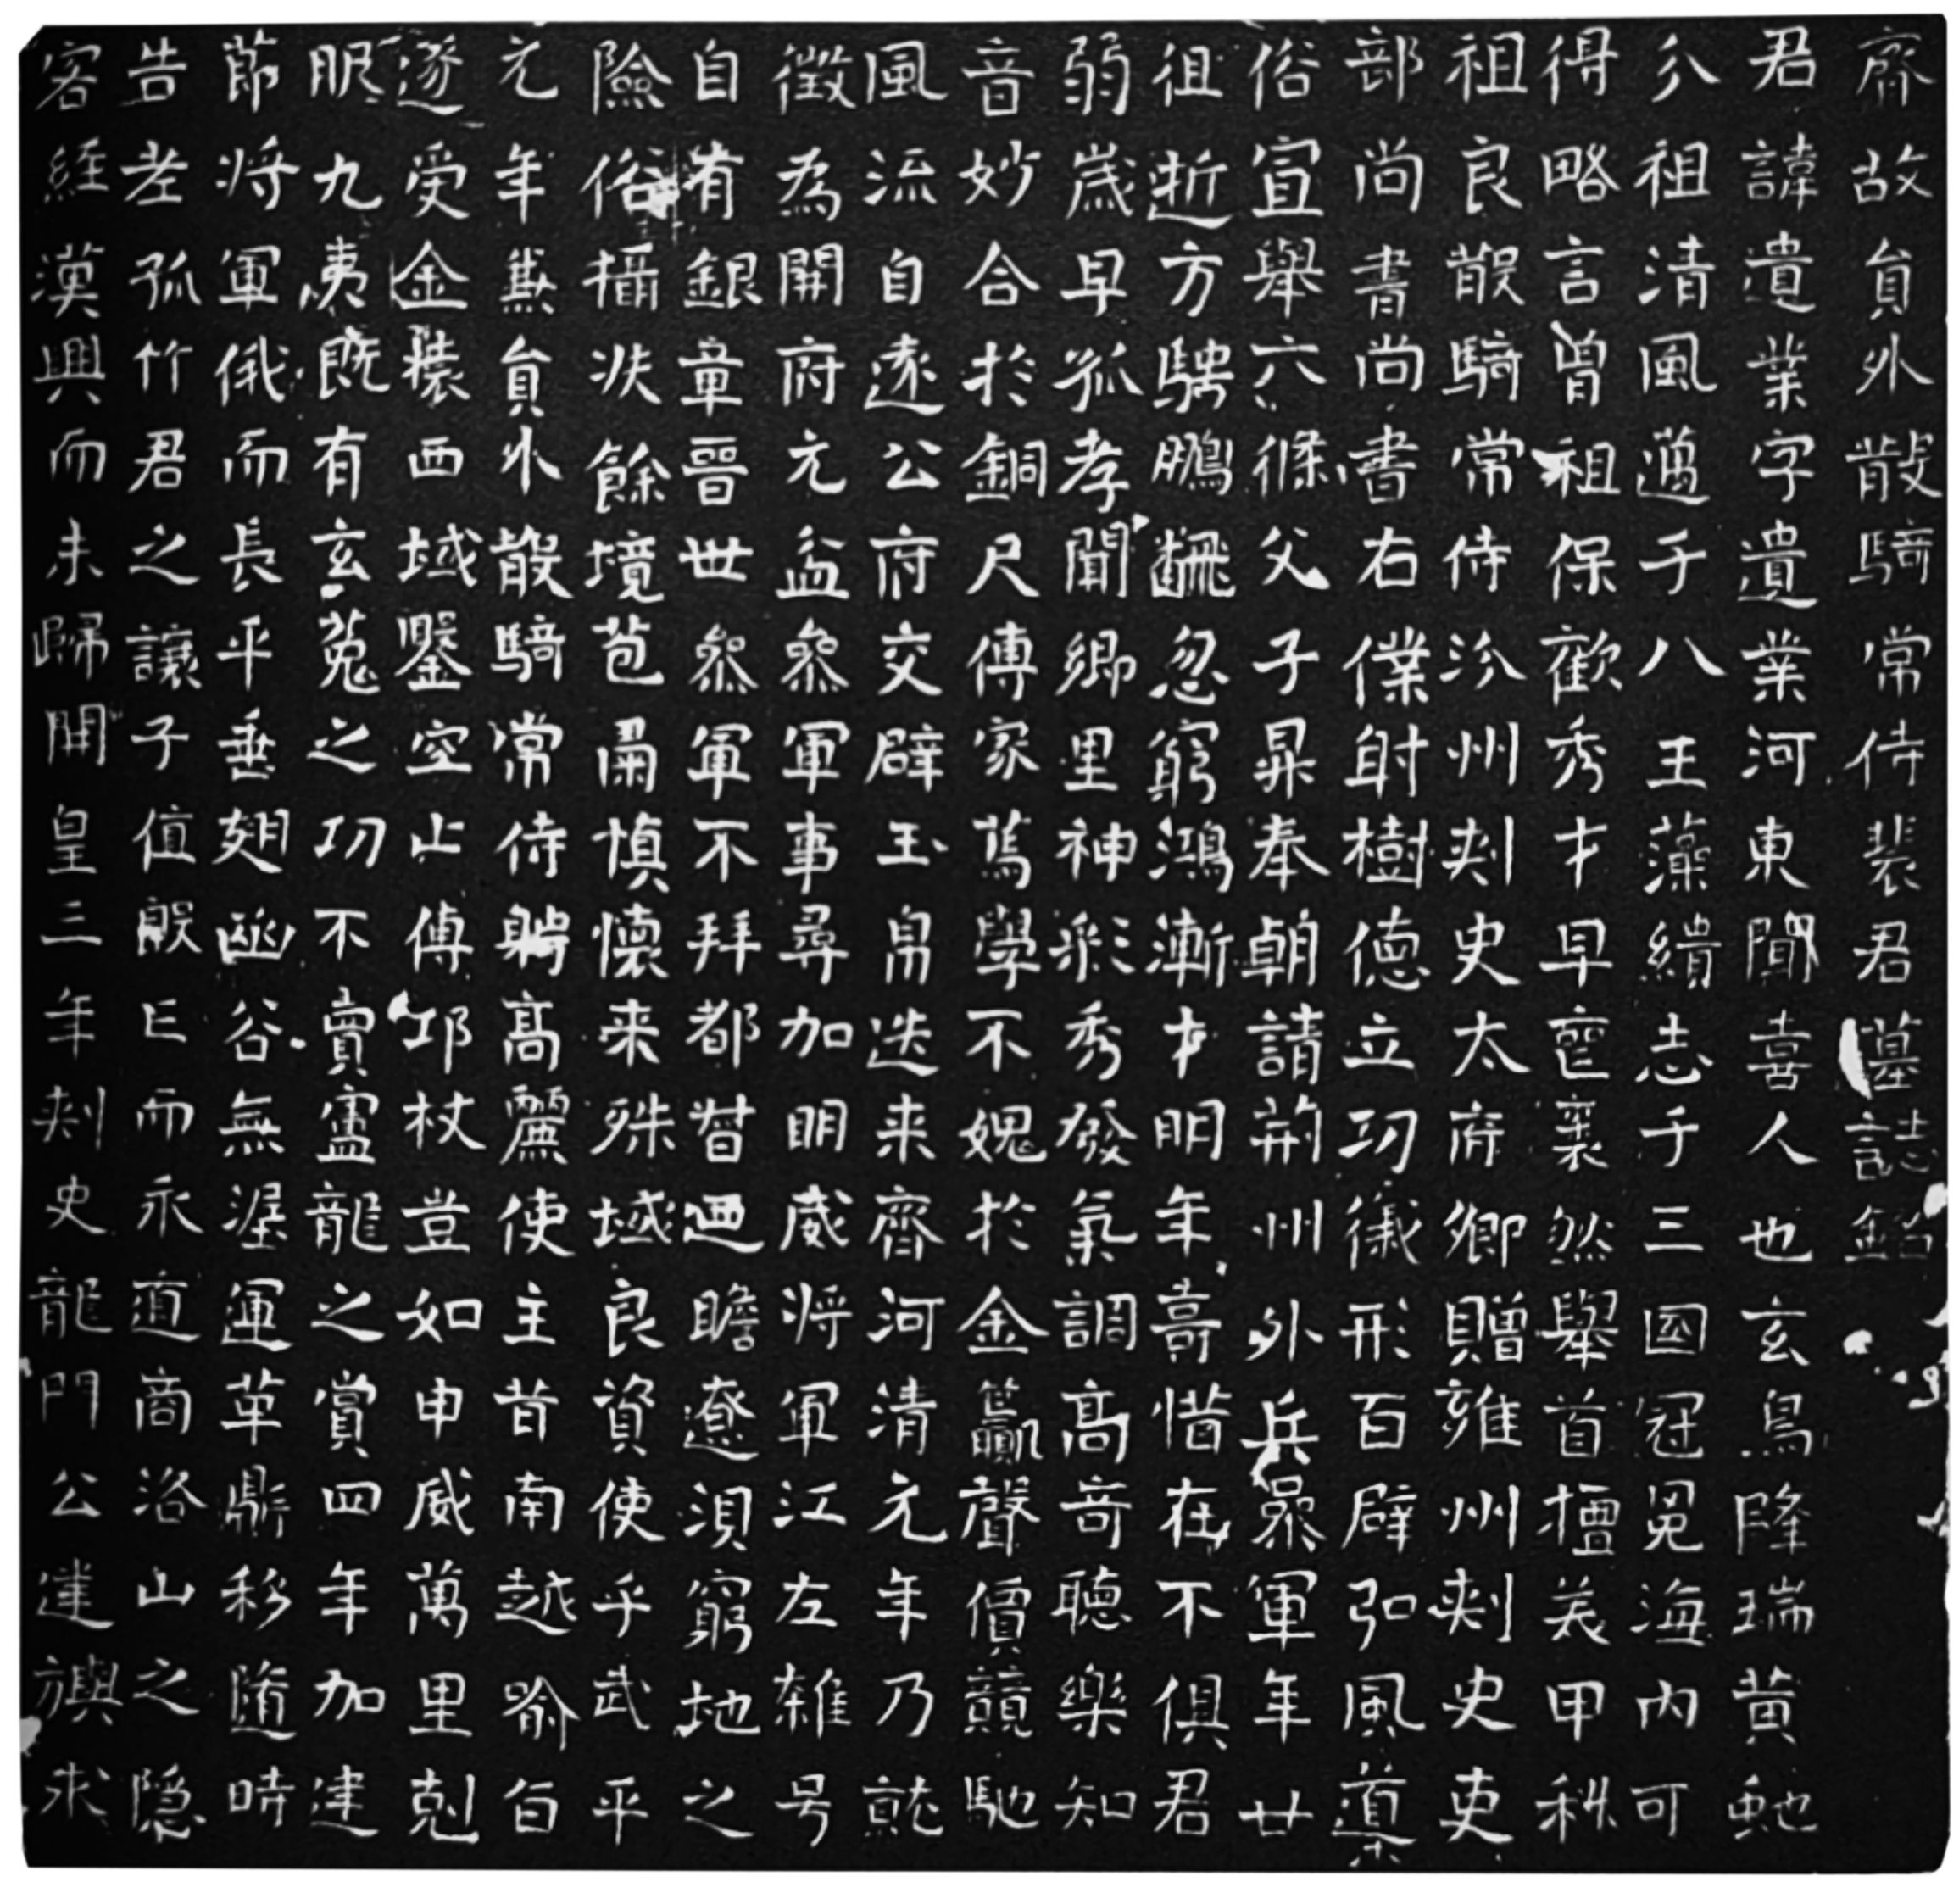 齊故員外散騎常侍裴君墓誌銘
君諱遺業字遺業河東聞喜人也玄鳥降瑞黃虵
分祖清風邁于八王藻繢志于三國冠冕海內可
得略言曾祖保歡秀才早亡襄然舉首擅美甲科
祖良散騎常侍汾州刺史太府卿贈雍州刺史吏
部尚書尚書右僕射樹德立功儀形百辟弘風導
俗宣舉六條父子昇奉朝請荊州外兵參軍年廿
徂逝方騁鵬翻忽窮鴻漸才明年奇惜在不俱君
弱歲早孤孝聞鄉里神彩秀發氣調高奇聰樂知
音妙合於銅尺傅家蔦學不媿於金籯聲價競馳
風流自遠公府交辟玉帛迭來齊河清元年乃就
徵為開府元益參軍事尋加明威將軍江左雜号
自有銀章晉世參軍不拜都督迺瞻遼浿窮地之
險俗攝浹餘境苞肅慎懷來殊域良資使乎武平
元年兼員外散騎常侍聘高麗使主昔南越喻伯
遂受金裝西域鑿空止傅邛杖豈如申威萬里剋
服九夷既有玄菟之功不賣盧龍之賞四年加建
節將軍俄而長平垂翅函谷無渥運革鼎移隨時
告老孤竹君之讓子值殷亡而永逭商洛山之隱
客經漢興而未歸開皇三年刺史龍門公達旟求